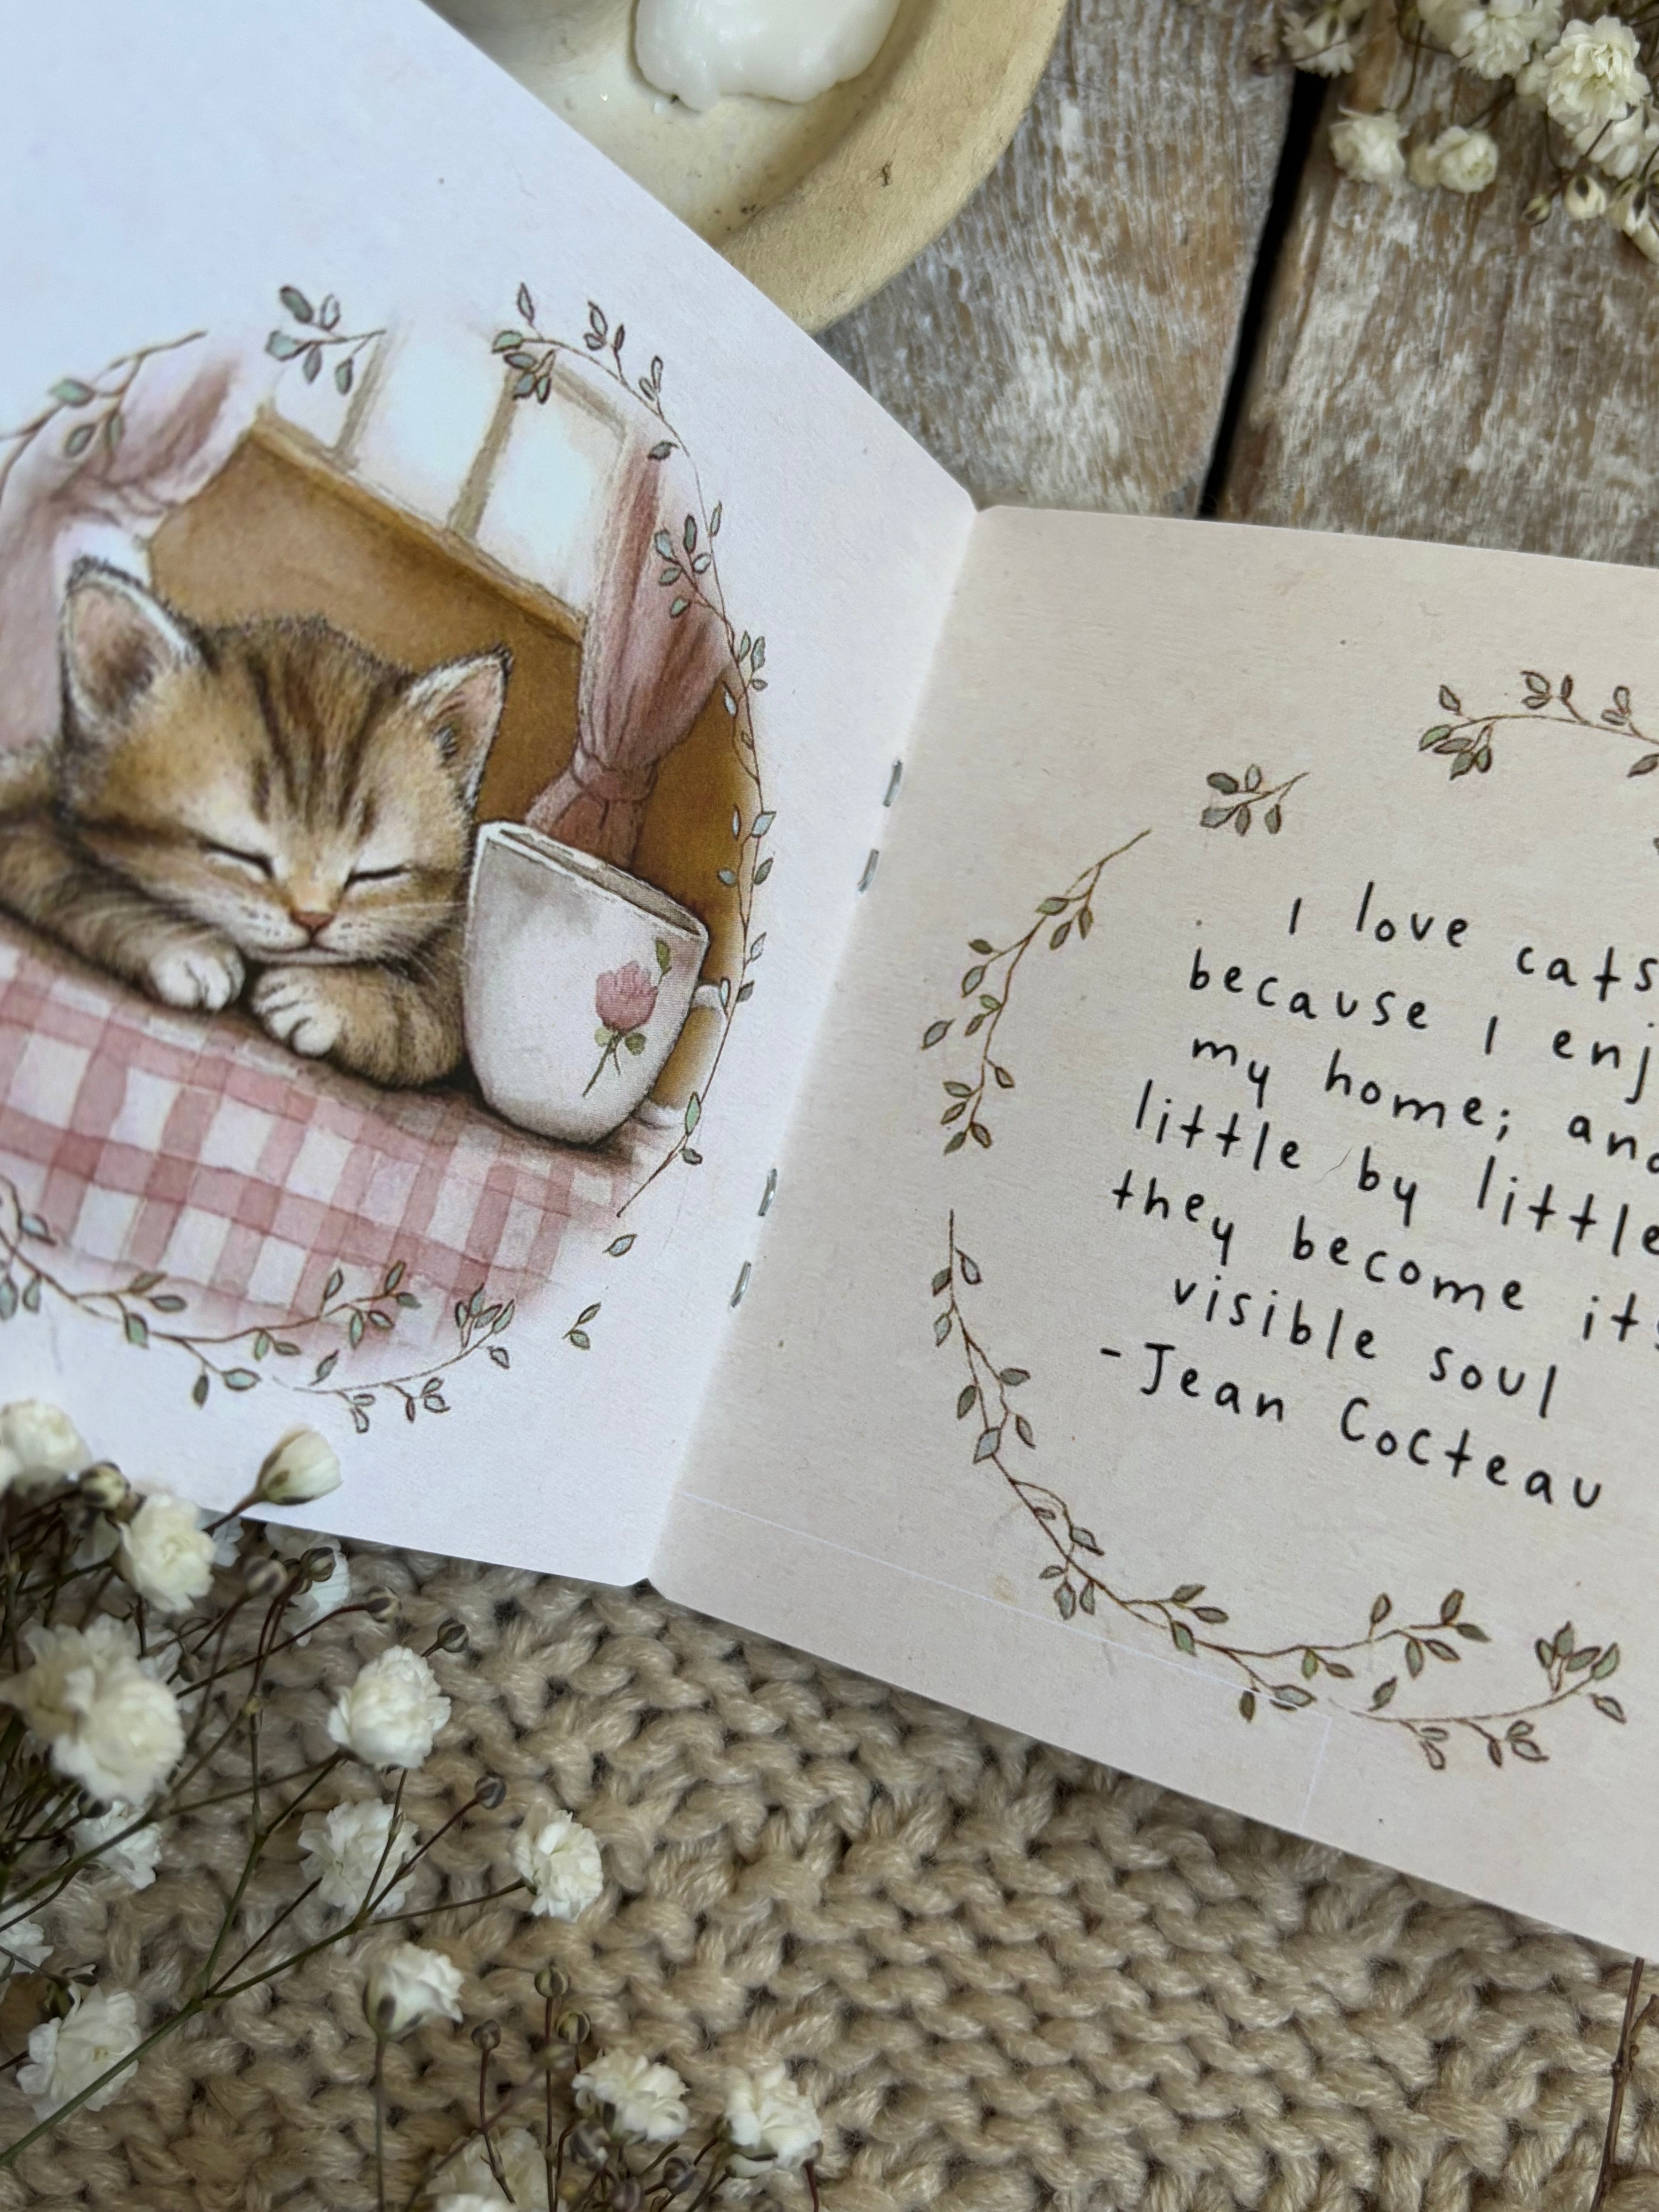 I love cats
because I enj
my home; and
little by little
they become its
visible soul
-Jean Cocteau